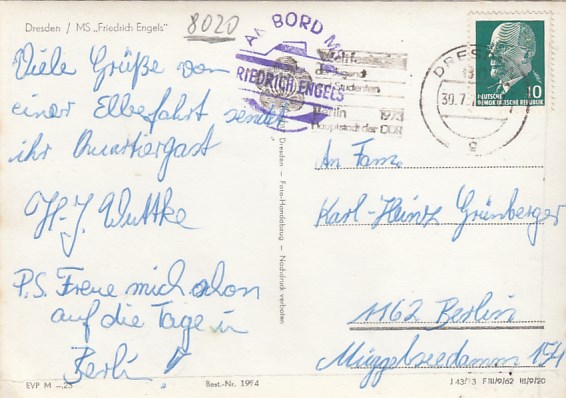 Dresden / MS „Friedrich Engels"
8020
AN BORD MS
FRIEDRICH ENGELS
Weltfestspiele
der Jugend
und Studenten
Berlin 1973
Hauptstadt der DDR
DRESDEN
30.7.
g
10
DEUTSCHE
DEMOKRATISCHE REPUBLIK
Viele Grüße von
einer Elbefahrt sendet
ihr Quartiergast
H-J. Wuttke
P.S. Freue mich schon
auf die Tage in
Berlin!
An Fam.
Karl-Heinz Grünberger
1162 Berlin
Müggelseedamm 154
Dresden — Foto-Handabzug — Nachdruck verboten
EVP M -,25
Best.-Nr. 1954
J 43/73 F III/9/62 III/9/20